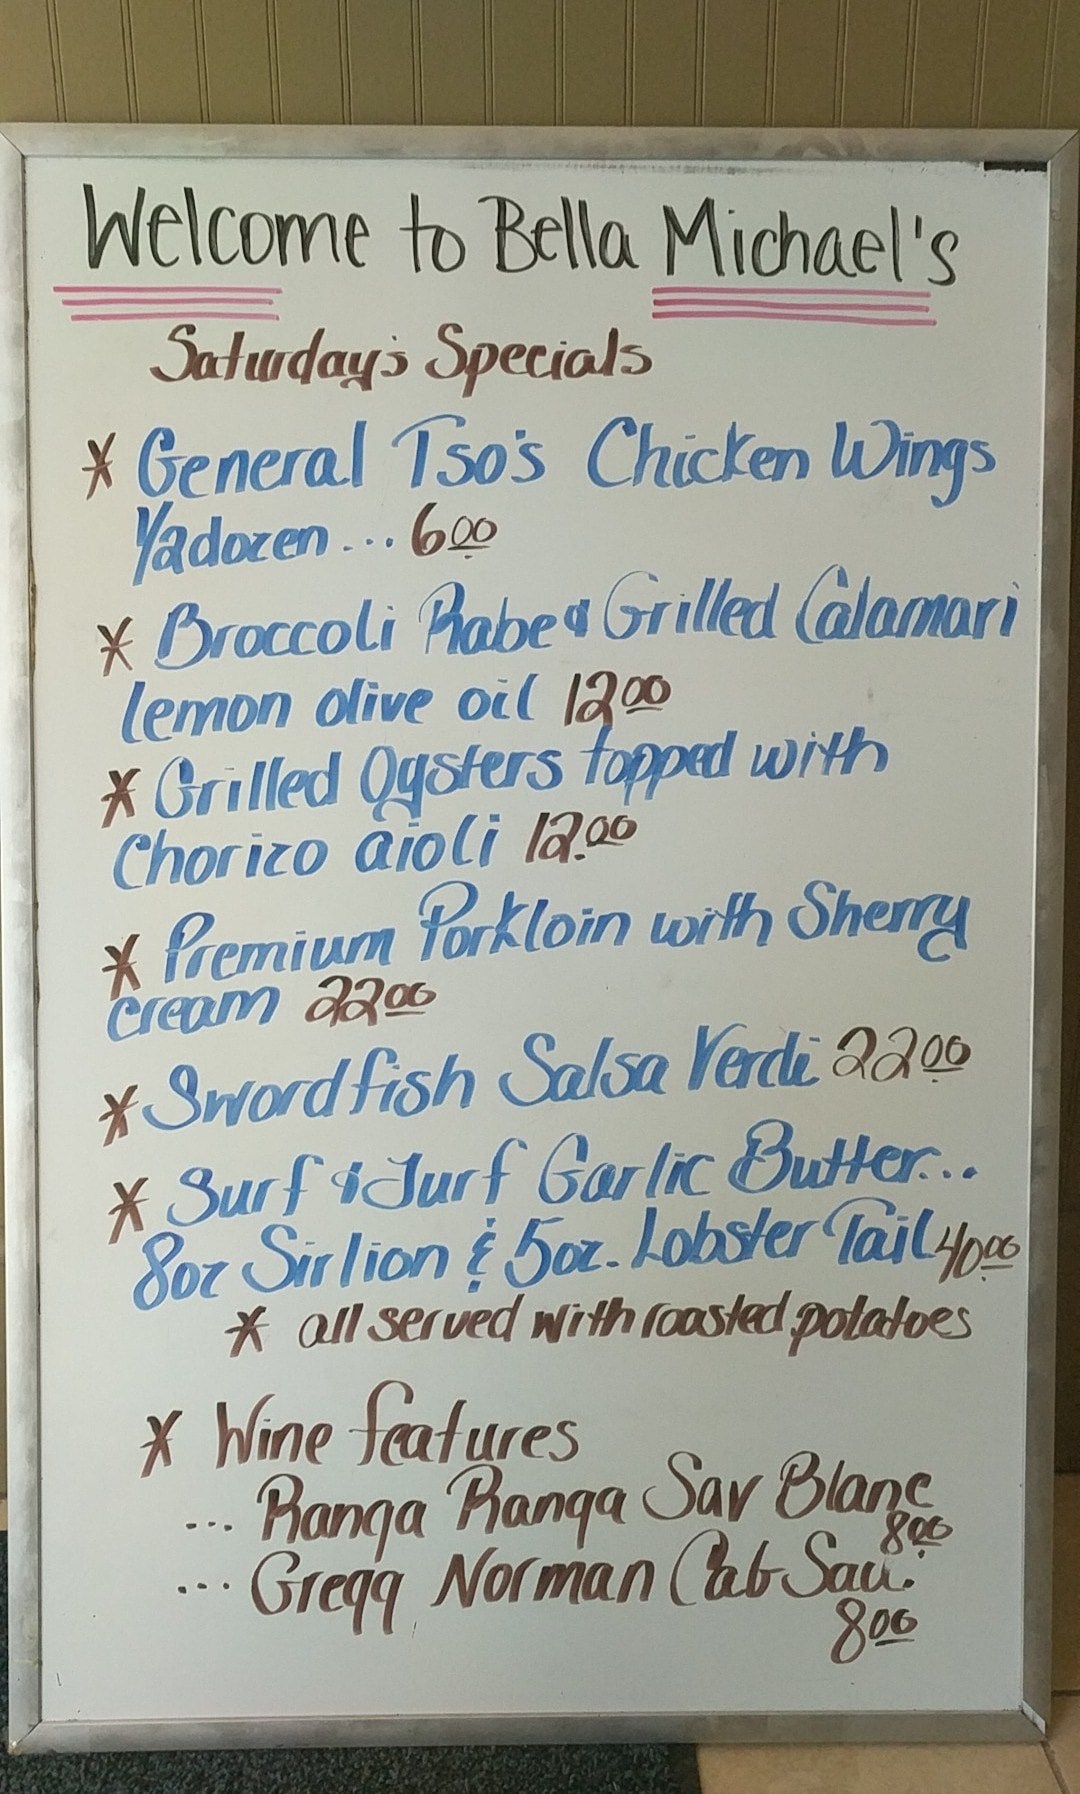 Welcome to Bella Michael's
Saturday's Specials
* General Tso's Chicken Wings
1/2 dozen... 6.00
* Broccoli Rabe & Grilled Calamari
lemon olive oil 12 00
* Grilled Oysters topped with
Chorizo aioli 12.00
* Premium Porkloin with Sherry
cream 22 00
* Swordfish Salsa Verdi 22.00
* Surf & Turf Garlic Butter...
8oz Sirlion & 5oz. Lobster Tail 40.00
* all served with roasted potatoes
* Wine features
... Ranga Ranga Sav Blanc
8 00
... Gregg Norman Cab Sau.
8 00